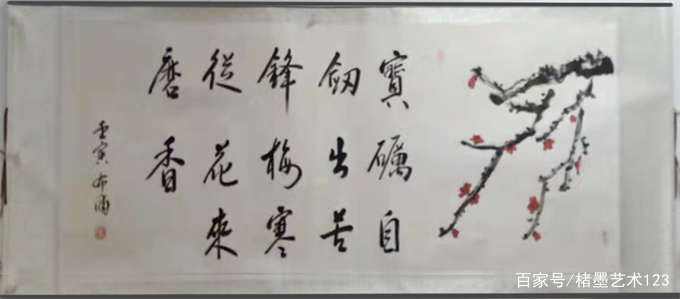 寶劔鋒從磨
礪出梅花香
自苦寒來
壬寅
百家号/楮墨艺术123